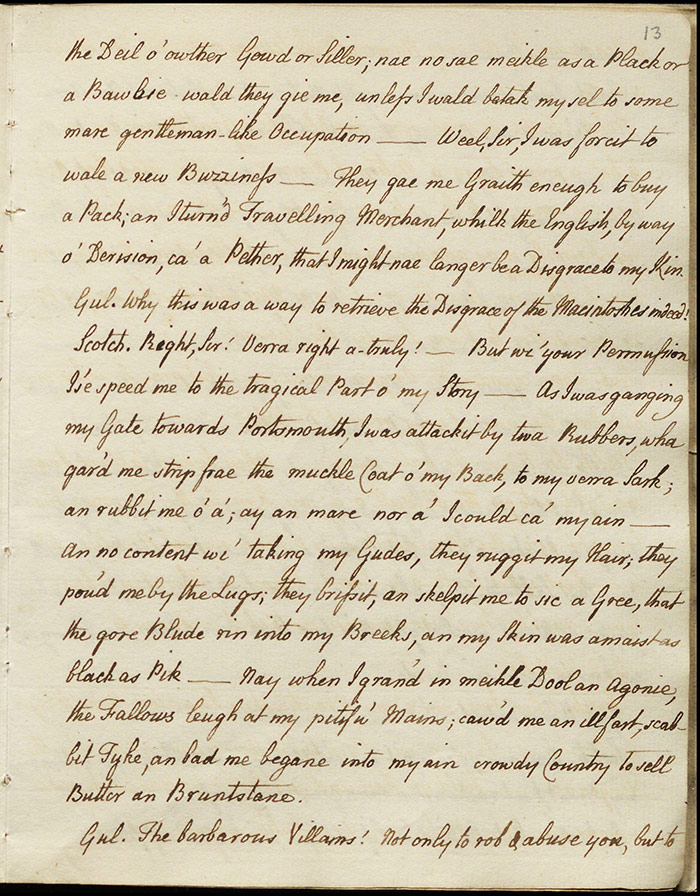 13
the Deil o' owther Gowd or Siller; nae no sae meikle as a Plack or
a Bawbie wald they gie me, unless I wald betak my sel to some
mare gentleman-like Occupation —— Weel, Sir, I was forcit to
wale a new Buzziness —— They gae me Graith eneugh to buy
a Pack; an I turn'd Travelling Merchant, whilk the English, by way
o' Derision, ca' a Pether, that I might nae langer be a Disgrace to my Kin.
Gul. Why this was a way to retrieve the Disgrace of the Macintoshes indeed!
Scotch. Right, Sir! Verra right a-truly! — But wi' your Permission
I'se speed me to the tragical Part o' my Story —— As I was ganging
my Gate towards Portsmouth, I was attackit by twa Rubbers, wha
gar'd me strip frae the muckle Coat o' my Back, to my verra Sark;
an rubbit me o' a'; ay an mare nor a' I could ca' my ain ——
An no content wi' taking my Gudes, they ruggit my Hair; they
pou'd me by the Lugs; they brissit, an skelpit me to sic a Gree, that
the gore Blude rin into my Breeks, an my Skin was amaist as
black as Pik —— Nay when I gran'd in meikle Dool an Agonie,
the Fallows leugh at my pitifu' Mains; caw'd me an ill fart, scab-
bit Tyke, an bad me begane into my ain crowdy Country to sell
Butter an Bruntstane.
Gul. The barbarous Villains! Not only to rob & abuse you, but to